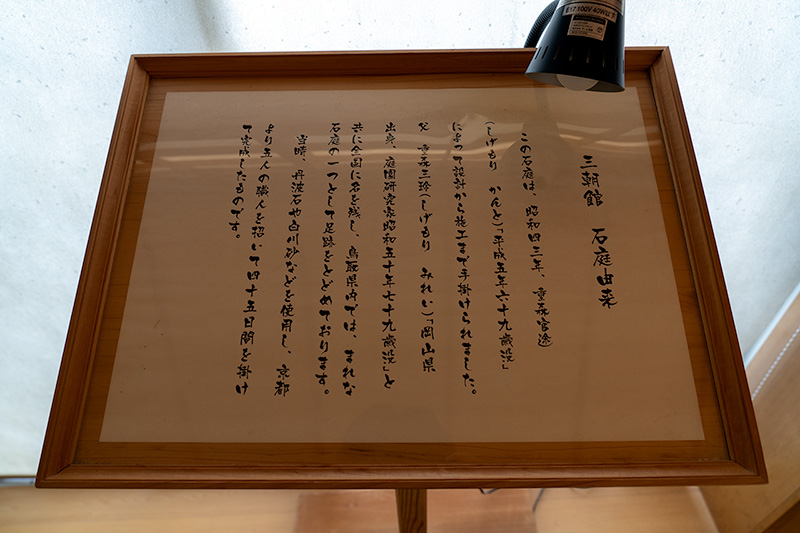 三朝館　石庭由来
この石庭は、昭和四三年、重森完途
(しげもり　かんと)「平成五年六十九歳没」
によって設計から施工まで手掛けられました。
父　重森三玲(しげもり　みれい)「岡山県
出身、庭園研究家昭和五十年七十九歳没」と
共に全国に名を残し、鳥取県内では、まれな
石庭の一つとして足跡をとどめております。
当時、丹波石や白川砂などを使用し、京都
より五人の職人を招いて四十五日間を掛け
て完成したものです。
E17 100V 40W以下